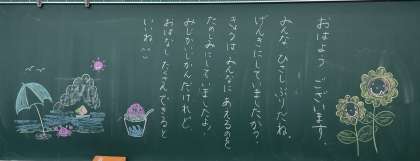 おはよう ございます。
みんな ひさしぶりだね。
げんきにしていましたか？
きょうは みんなに あえるのを
たのしみにしていましたよ。
みじかいじかんだけれど
おはなし たくさんできると
いいね^^